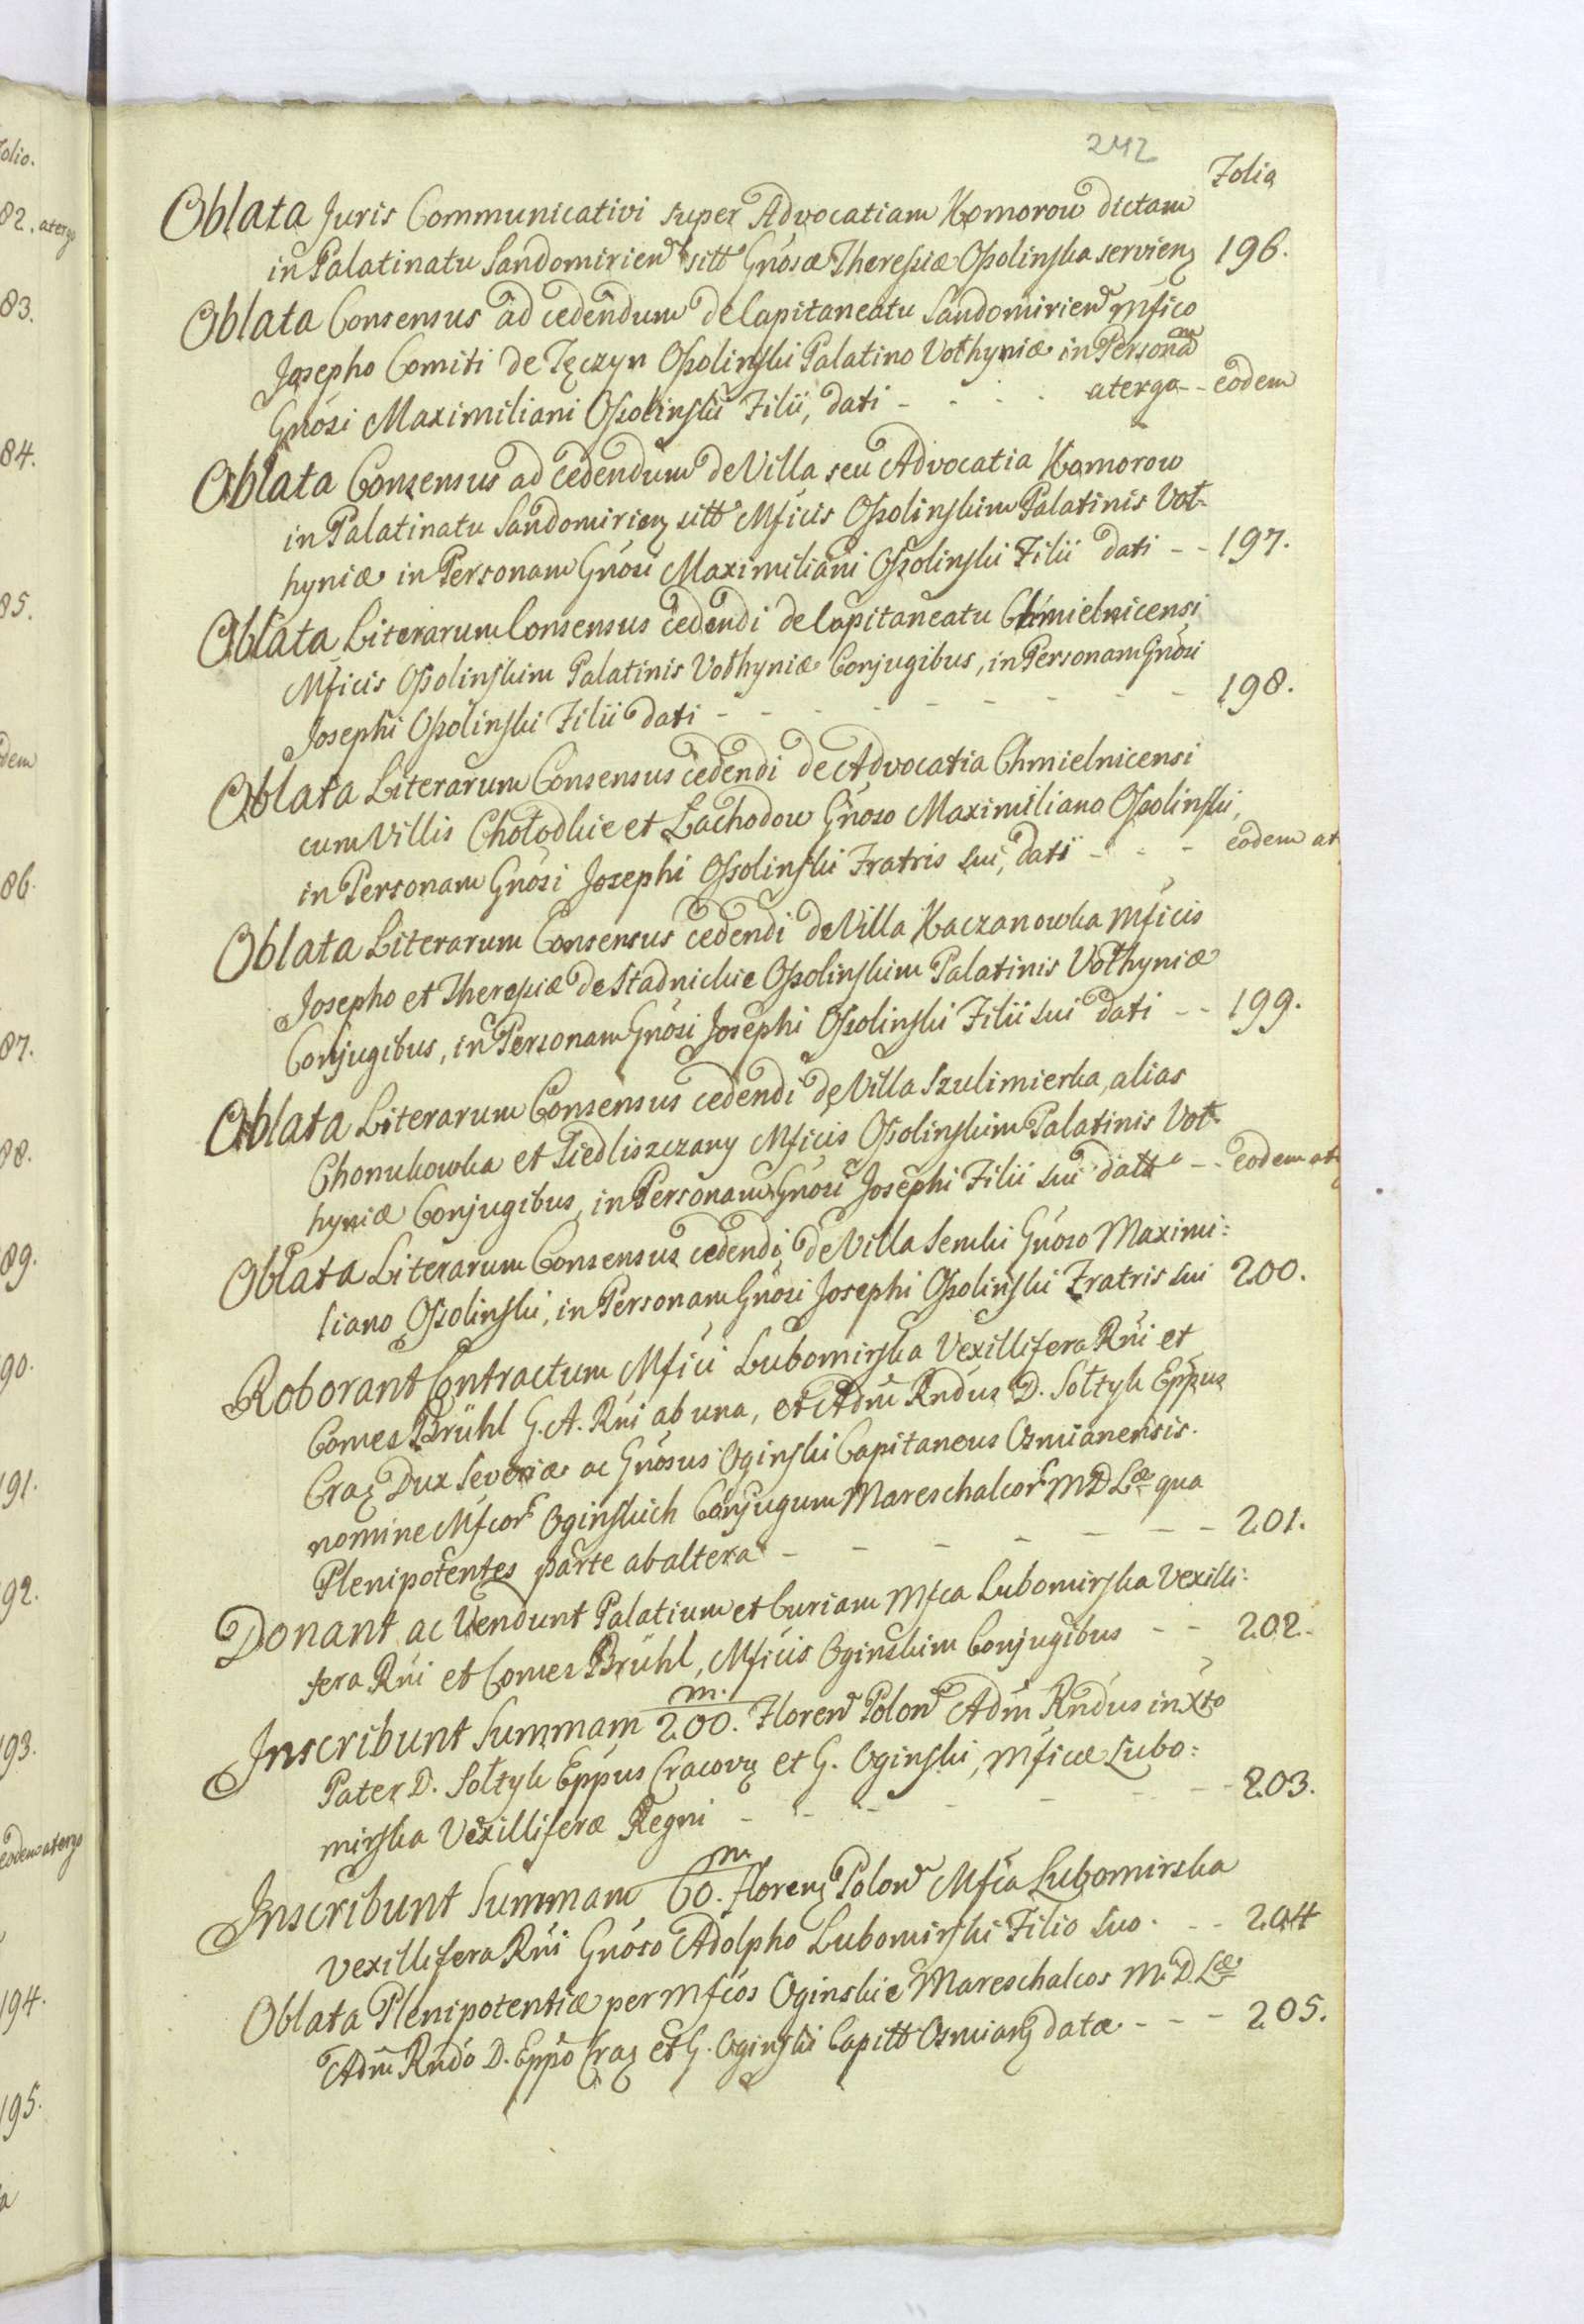 242
Folia
Oblata Juris Communicativi super Advocatiam Komorow dictam
in Palatinatu Sandomirien sitt Gnosæ Theressiæ Ossolinska servienz 196.
Oblata Consensus ad cedendum de Capitaneatu Sandomirien Mfico
Josepho Comiti de Tęczyn Ossolinski Palatino Vołhyniæ in Personam
Gnosi Maximiliani Ossolinski Filii, dati - - - - atergo - - eodem
Oblata Consensus ad cedendum de Villa seu Advocatia Komorow
in Palatinatu Sandomirienz sitt Mficis Ossolinskim Palatinis Voł-
hyniæ in Personam Gnosi Maximiliani Ossolinski Filii dati - - 197.
Oblata Literarum Consensus cedendi de Capitaneatu Chmielnicensi
Mficis Ossolinskim Palatinis Vołhyniæ Conjugibus, in Personam Gnosi
Josephi Ossolinski Filii dati - - - - - - - - 198.
Oblata Literarum Consensus cedendi de Advocatia Chmielnicensi
cum Villis Chołodkie et Lachodow Gnoso Maximiliano Ossolinski,
in Personam Gnosi Josephi Ossolinski Fratris sui, dati - - - eodem at
Oblata Literarum Consensus cedendi de Villa Kaczanowka Mficis
Josepho et Theressiæ de Stadnickie Ossolinskim Palatinis Vołhyniæ
Conjugibus, in Personam Gnosi Josephi Ossolinski Filii sui dati - - 199.
Oblata Literarum Consensus cedendi de Villa Szulimierka, alias
Chonukowka et Piedliszczany Mficis Ossolinskim Palatinis Voł-
hyniæ Conjugibus, in Personam Gnosi Josephi Filii sui datt - - eodem at
Oblata Literarum Consensus cedendi de Villa Semki Gnoso Maximi:
liano Ossolinski, in Personam Gnosi Josephi Ossolinski Fratris sui 200.
Roborant Contractum Mfici Lubomirska Vexillifera Rni et
Comes Brühl G. A. Rni ab una, et Adm Rndus D. Sołtyk Eppus
Craz Dux Severiæ ac Gnosus Oginski Capitaneus Osmianensis.
nomine Mfcor Oginskich Conjugum Mareschalcor M D Læ qua
Plenipotentes parte ab altera - - - - - - - 201.
Donant ac Vendunt Palatium et Curiam Mfca Lubomirska Vexilli:
fera Rni et Comes Brühl, Mficis Oginskim Conjugibus - - 202.
Inscribunt Summam m. 200. Floren Polon Adm Rndus in Xto
Pater D. Sołtyk Eppus Cracovz et G. Oginski, Mficæ Lubo:
mirska Vexilliferæ Regni - - - - - - - 203.
Inscribunt Summam m. 60. florenz Polon Mfca Lubomirska
Vexillifera Rni Gnoso Adolpho Lubomirski Filio suo. - - 204
Oblata Plenipotentiæ per Mfcos Oginskie Mareschalcos M. D. Læ
Adm Rndo D. Eppo Craz et G. Oginski Capitt Osmianz datæ - - - 205.
olio.
82. atergo
83.
84.
85.
dem
86.
87.
88.
89.
90.
191.
92.
93.
eodem atergo
194.
195.